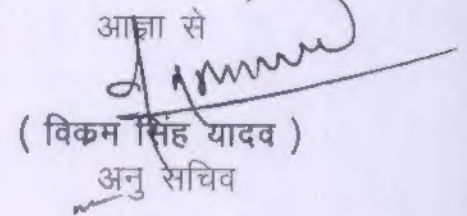 आज्ञा से
( विकम सिंह यादव )
अनु सचिव